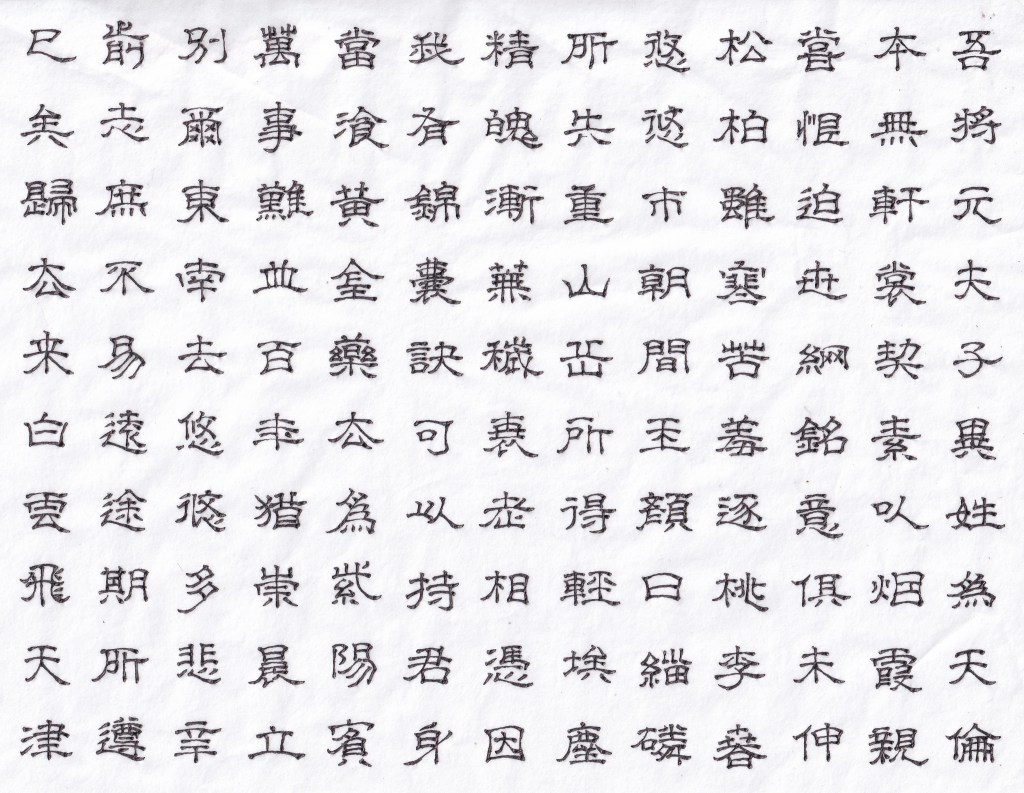 吾將元夫子異姓為天倫
本無軒裳契素以烟霞親
嘗恨迫世網銘意俱未伸
松柏雖寒苦羞逐桃李春
悠悠市朝間玉顏日緇磷
所失重山岳所得輕埃塵
精魄漸蕪穢衰老相憑因
我有錦囊訣可以持君身
當飡黃金藥去為紫陽賓
萬事難並百年猶崇晨立
別爾東南去悠悠多悲辛
前志庶不易遠途期所遵
已矣歸去来白雲飛天津